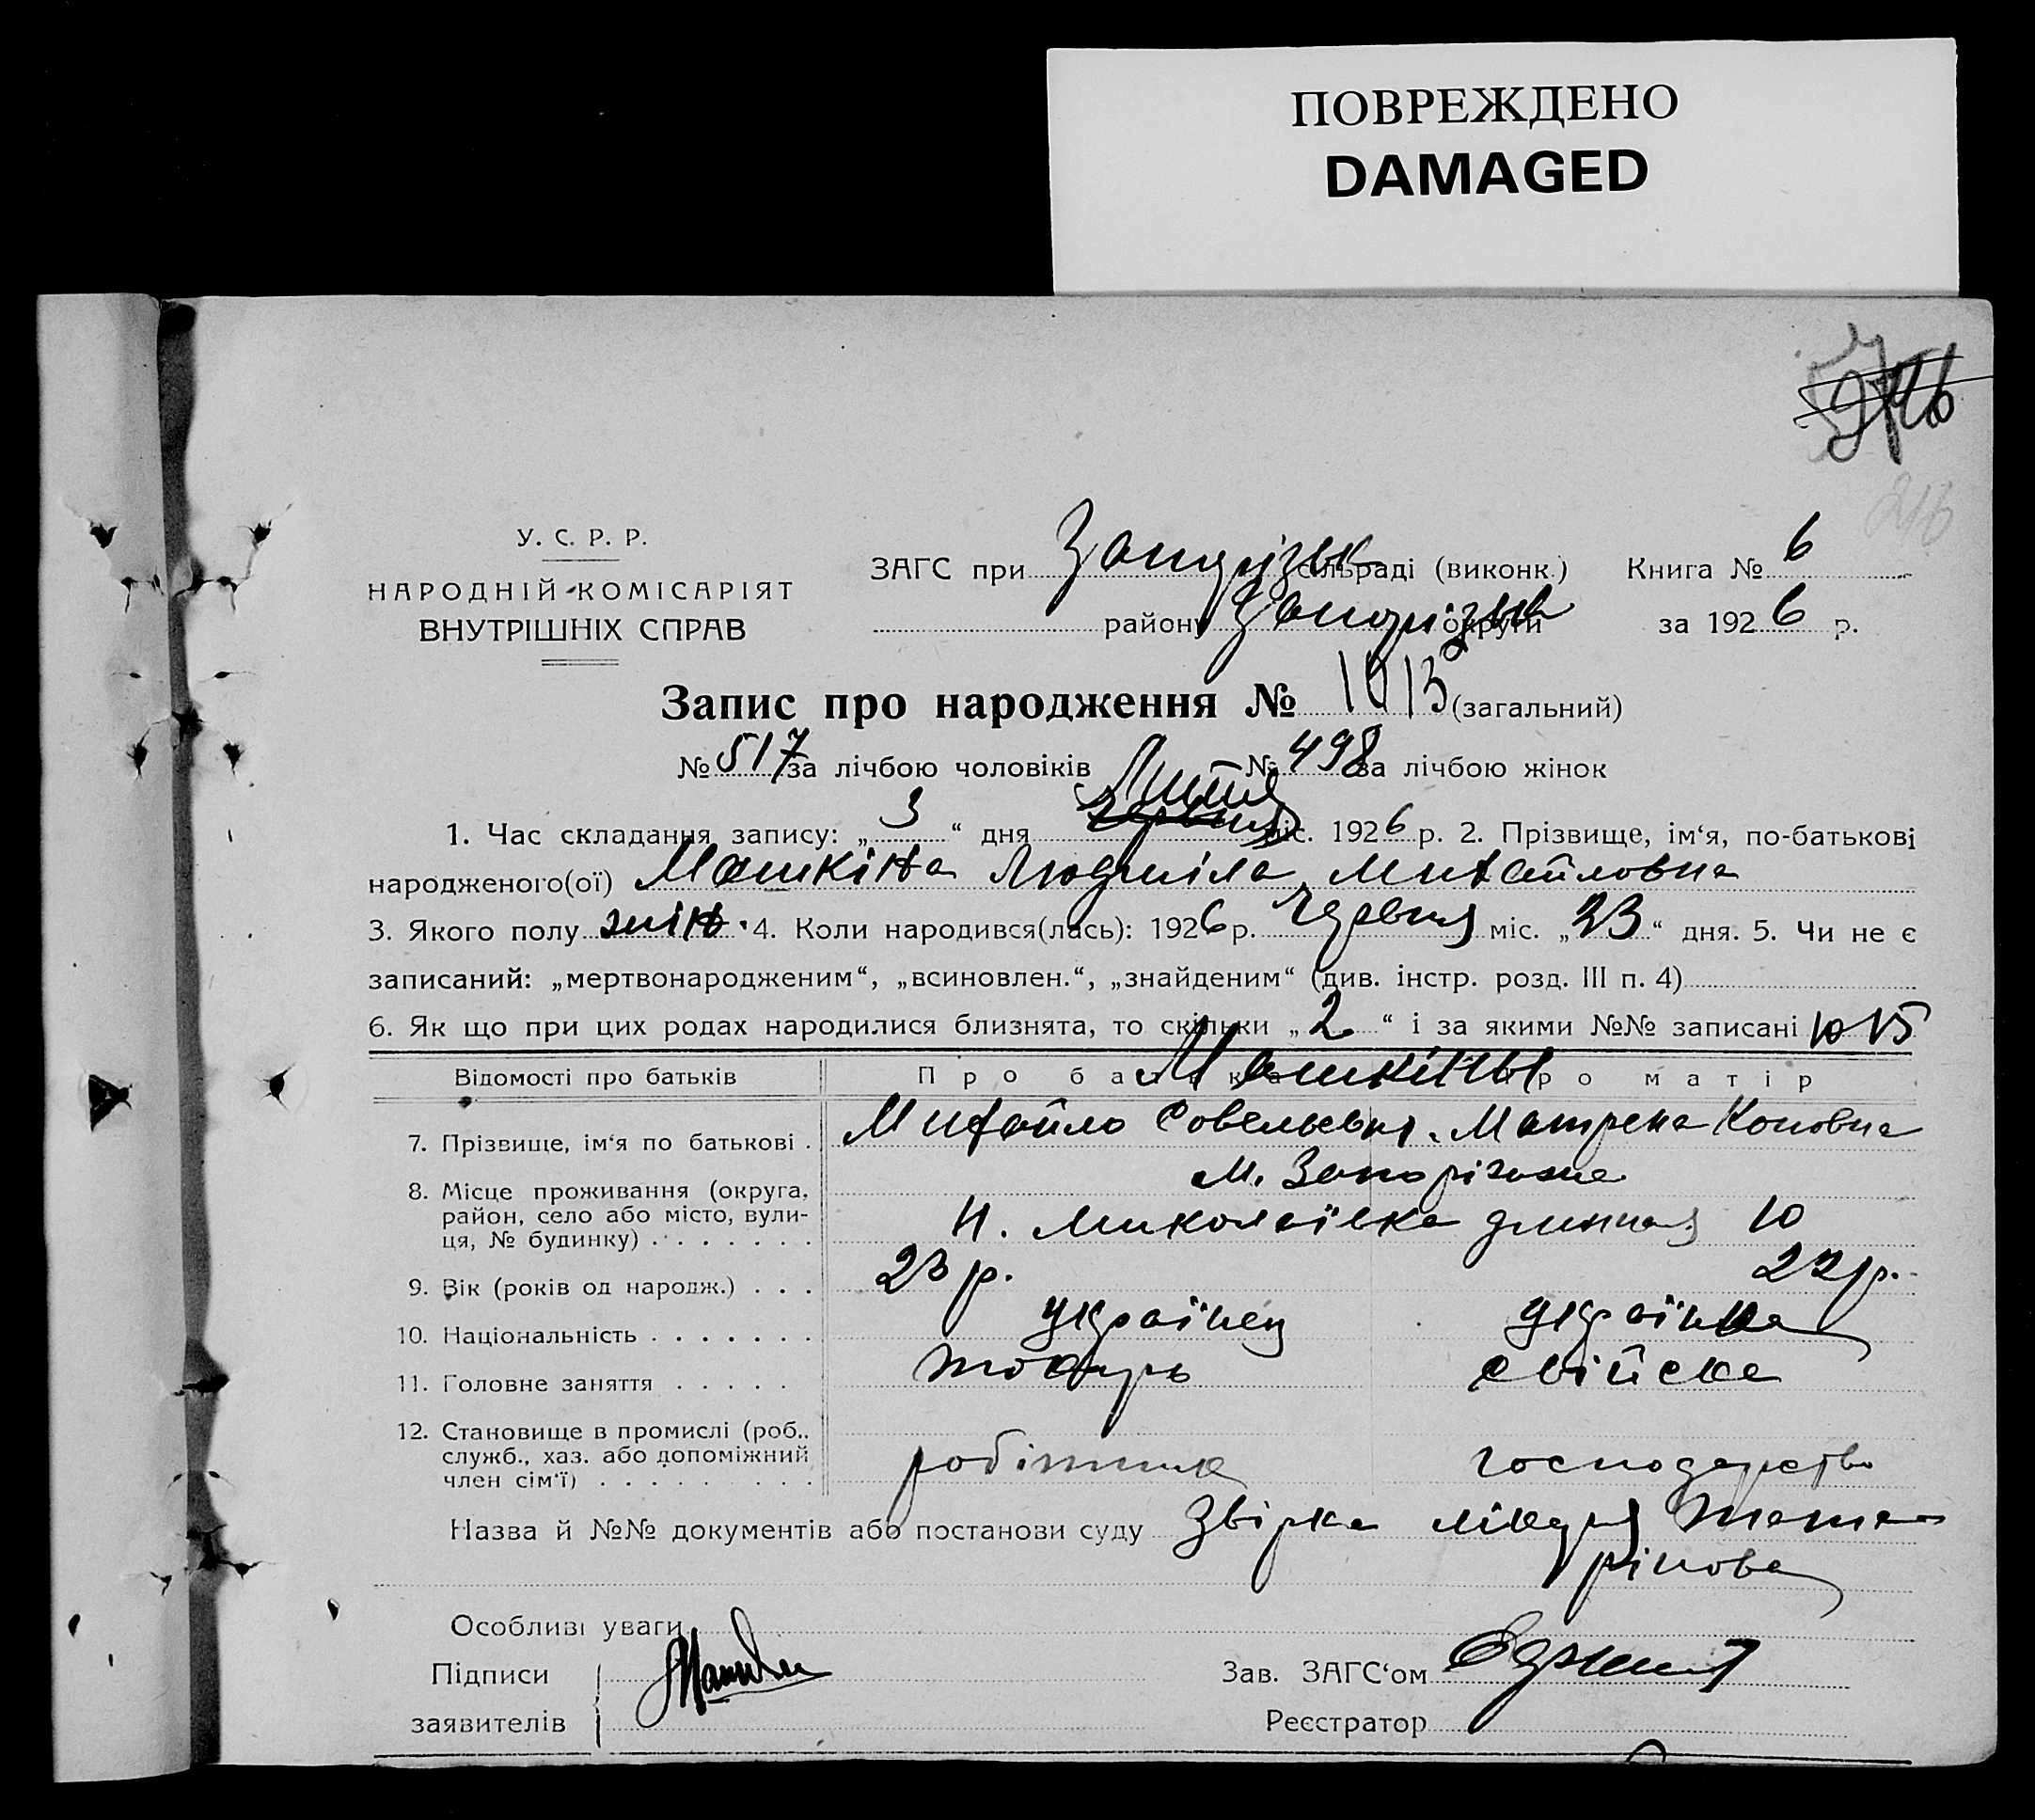 ПОВРЕЖДЕНО
DAMAGED
216
У. С. Р. Р.
НАРОДНІЙ КОМІСАРІЯТ
ВНУТРІШНІХ СПРАВ
ЗАГС при Запоріжськ сільраді (виконк.) Книга № 6
району Запоріжськ округи за 1926 р.
Запис про народження № 1013 (загальний)
№ 517 за лічбою чоловіків № 498 за лічбою жінок
1. Час складання запису: „3“ дня Липня міс. 1926 р. 2. Прізвище, ім‘я, по-батькові
народженого(ої) Машкіна Людміла Михайловна
3. Якого полу жінк. 4. Коли народився(лась): 1926 р. Червня міс. „23“ дня. 5. Чи не є
записаний: „мертвонародженим“, „всиновлен.“, „знайденим“ (див. інстр. розд. III п. 4)
6. Як що при цих родах народилися близнята, то скільки „2“ і за якими №№ записані 1015
Відомості про батьків Про батька Про матір
Машкіны
7. Прізвище, ім‘я по батькові . Михайло Савельевич. Матрена Коновна
8. Місце проживання (округа, район, село або місто, вулиця, № будинку) . . . . . . . м. Запоріжже
Н. Миколаївка длинная 10
9. Вік (років од народж.) . . . 23 р. 22 р.
10. Національність . . . . . . . українец українка
11. Головне заняття . . . . . токарь свійске
12. Становище в промислі (роб., служб., хаз. або допоміжний член сім‘ї) . . . . . . . . . робітник господарство
Назва й №№ документів або постанови суду Звірка лікаря
Особливі уваги
Підписи заявителів
Зав. ЗАГС‘ом
Реєстратор